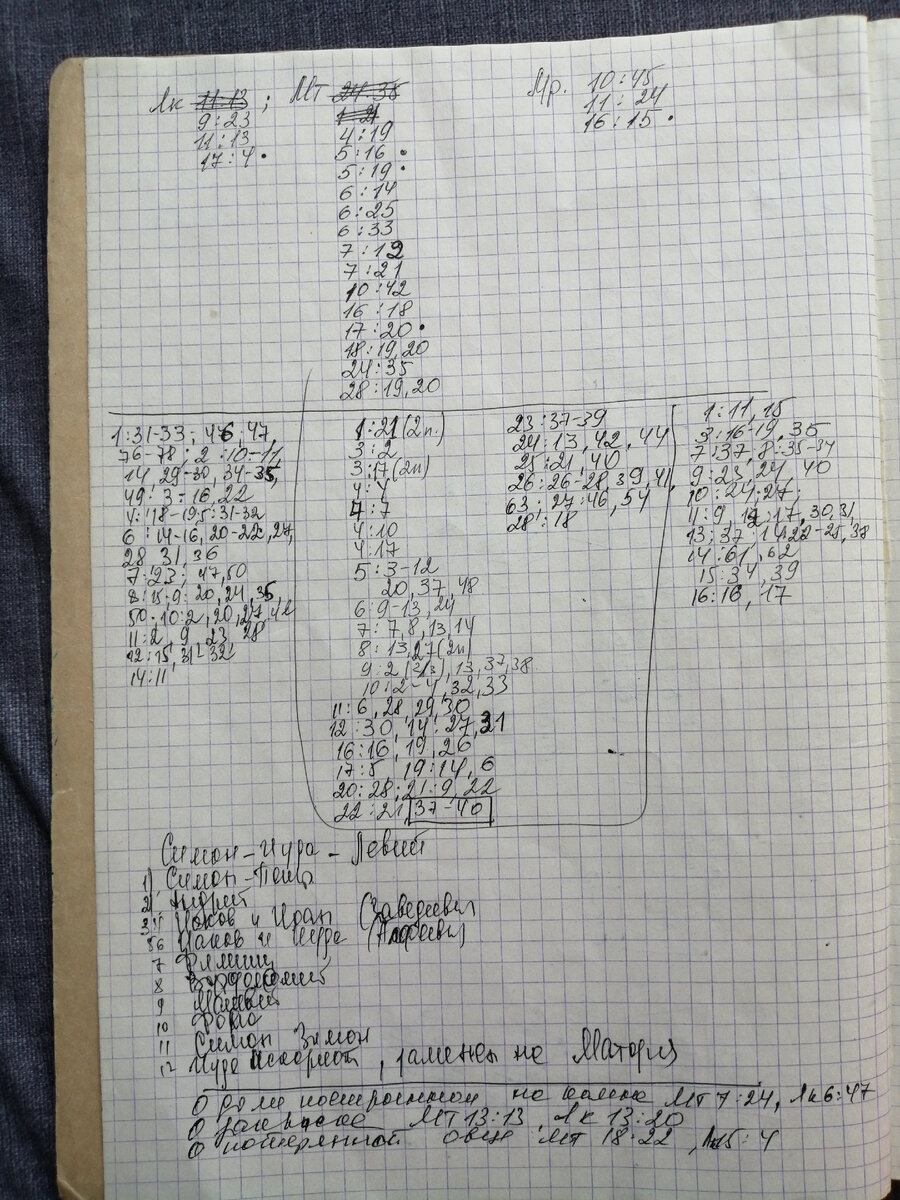 Лк 11:13 ; Мт 24:35
9:23
11:13
17:4.
1:21
4:19
5:16.
5:19.
6:14
6:25
6:33
7:12
7:21
10:42
16:18
17:20.
18:19,20
24:35
28:19,20
Мр. 10:45
11:24
16:15.
1:31-33; 46, 47,
76-78; 2:10-11,
14, 29-30, 34-35,
49; 3-16,22
4:18-19; 5:31-32
6:14-16, 20-22, 27,
28, 31, 36
7:23; 47,50
8:15; 9:20,24,35,
50; 10:2,20,27,42
11:2, 9, 23, 28
12:15, 31-32
14:11
1:21 (2п.)
3:2
3:17 (2п)
4:4
4:7
4:10
4:17
5:3-12
20, 37, 48
6:9-13, 24
7:7,8,13,14
8:13,27 (2п)
9:2 (2/3), 13, 37,38
10:2-4, 32,33
11:6, 28, 29, 30
12:30, 14:27,31
16:16, 19, 26
17:5, 19:14, 6
20:28; 21:9, 22
22:21, 37-40
23:37-39
24:13, 42, 44
25:21, 40
26:26-28, 39, 41,
63; 27:46, 54
28:18
1:11, 15
3:16-19, 35
7:37, 8:35-37
9:23, 24, 40
10:24,27;
11:9, 12:17, 30,31,
13:37; 14:22-25,38
14:61, 62
15:34, 39
16:16, 17
Симон-Иуда-Левий
1) Симон-Пётр
2) Андрей
3) Иаков и Иоан (Заведеевы
56 Иаков и Иуда (Алфеевы)
7 Филипп
8 Варфоломей
9 Матвей
10 Фома
11 Симон Зилот
12 Иуда Искариот, заменен на Матфия
О доме построенном на камне Мт 7:24, Лк 6:47
О закваске Мт 13:13, Лк 13:20
О потерянной овце Мт 18:22, Лк 15:4